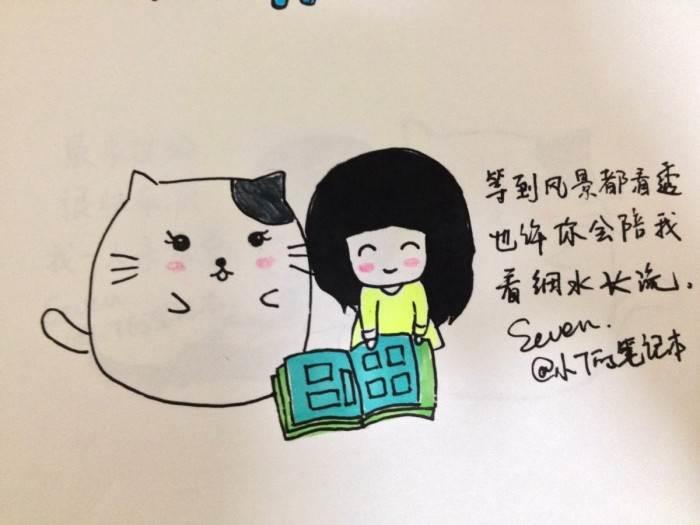 等到风景都看透
也许你会陪我
看细水长流。
Seven.
@小T的笔记本